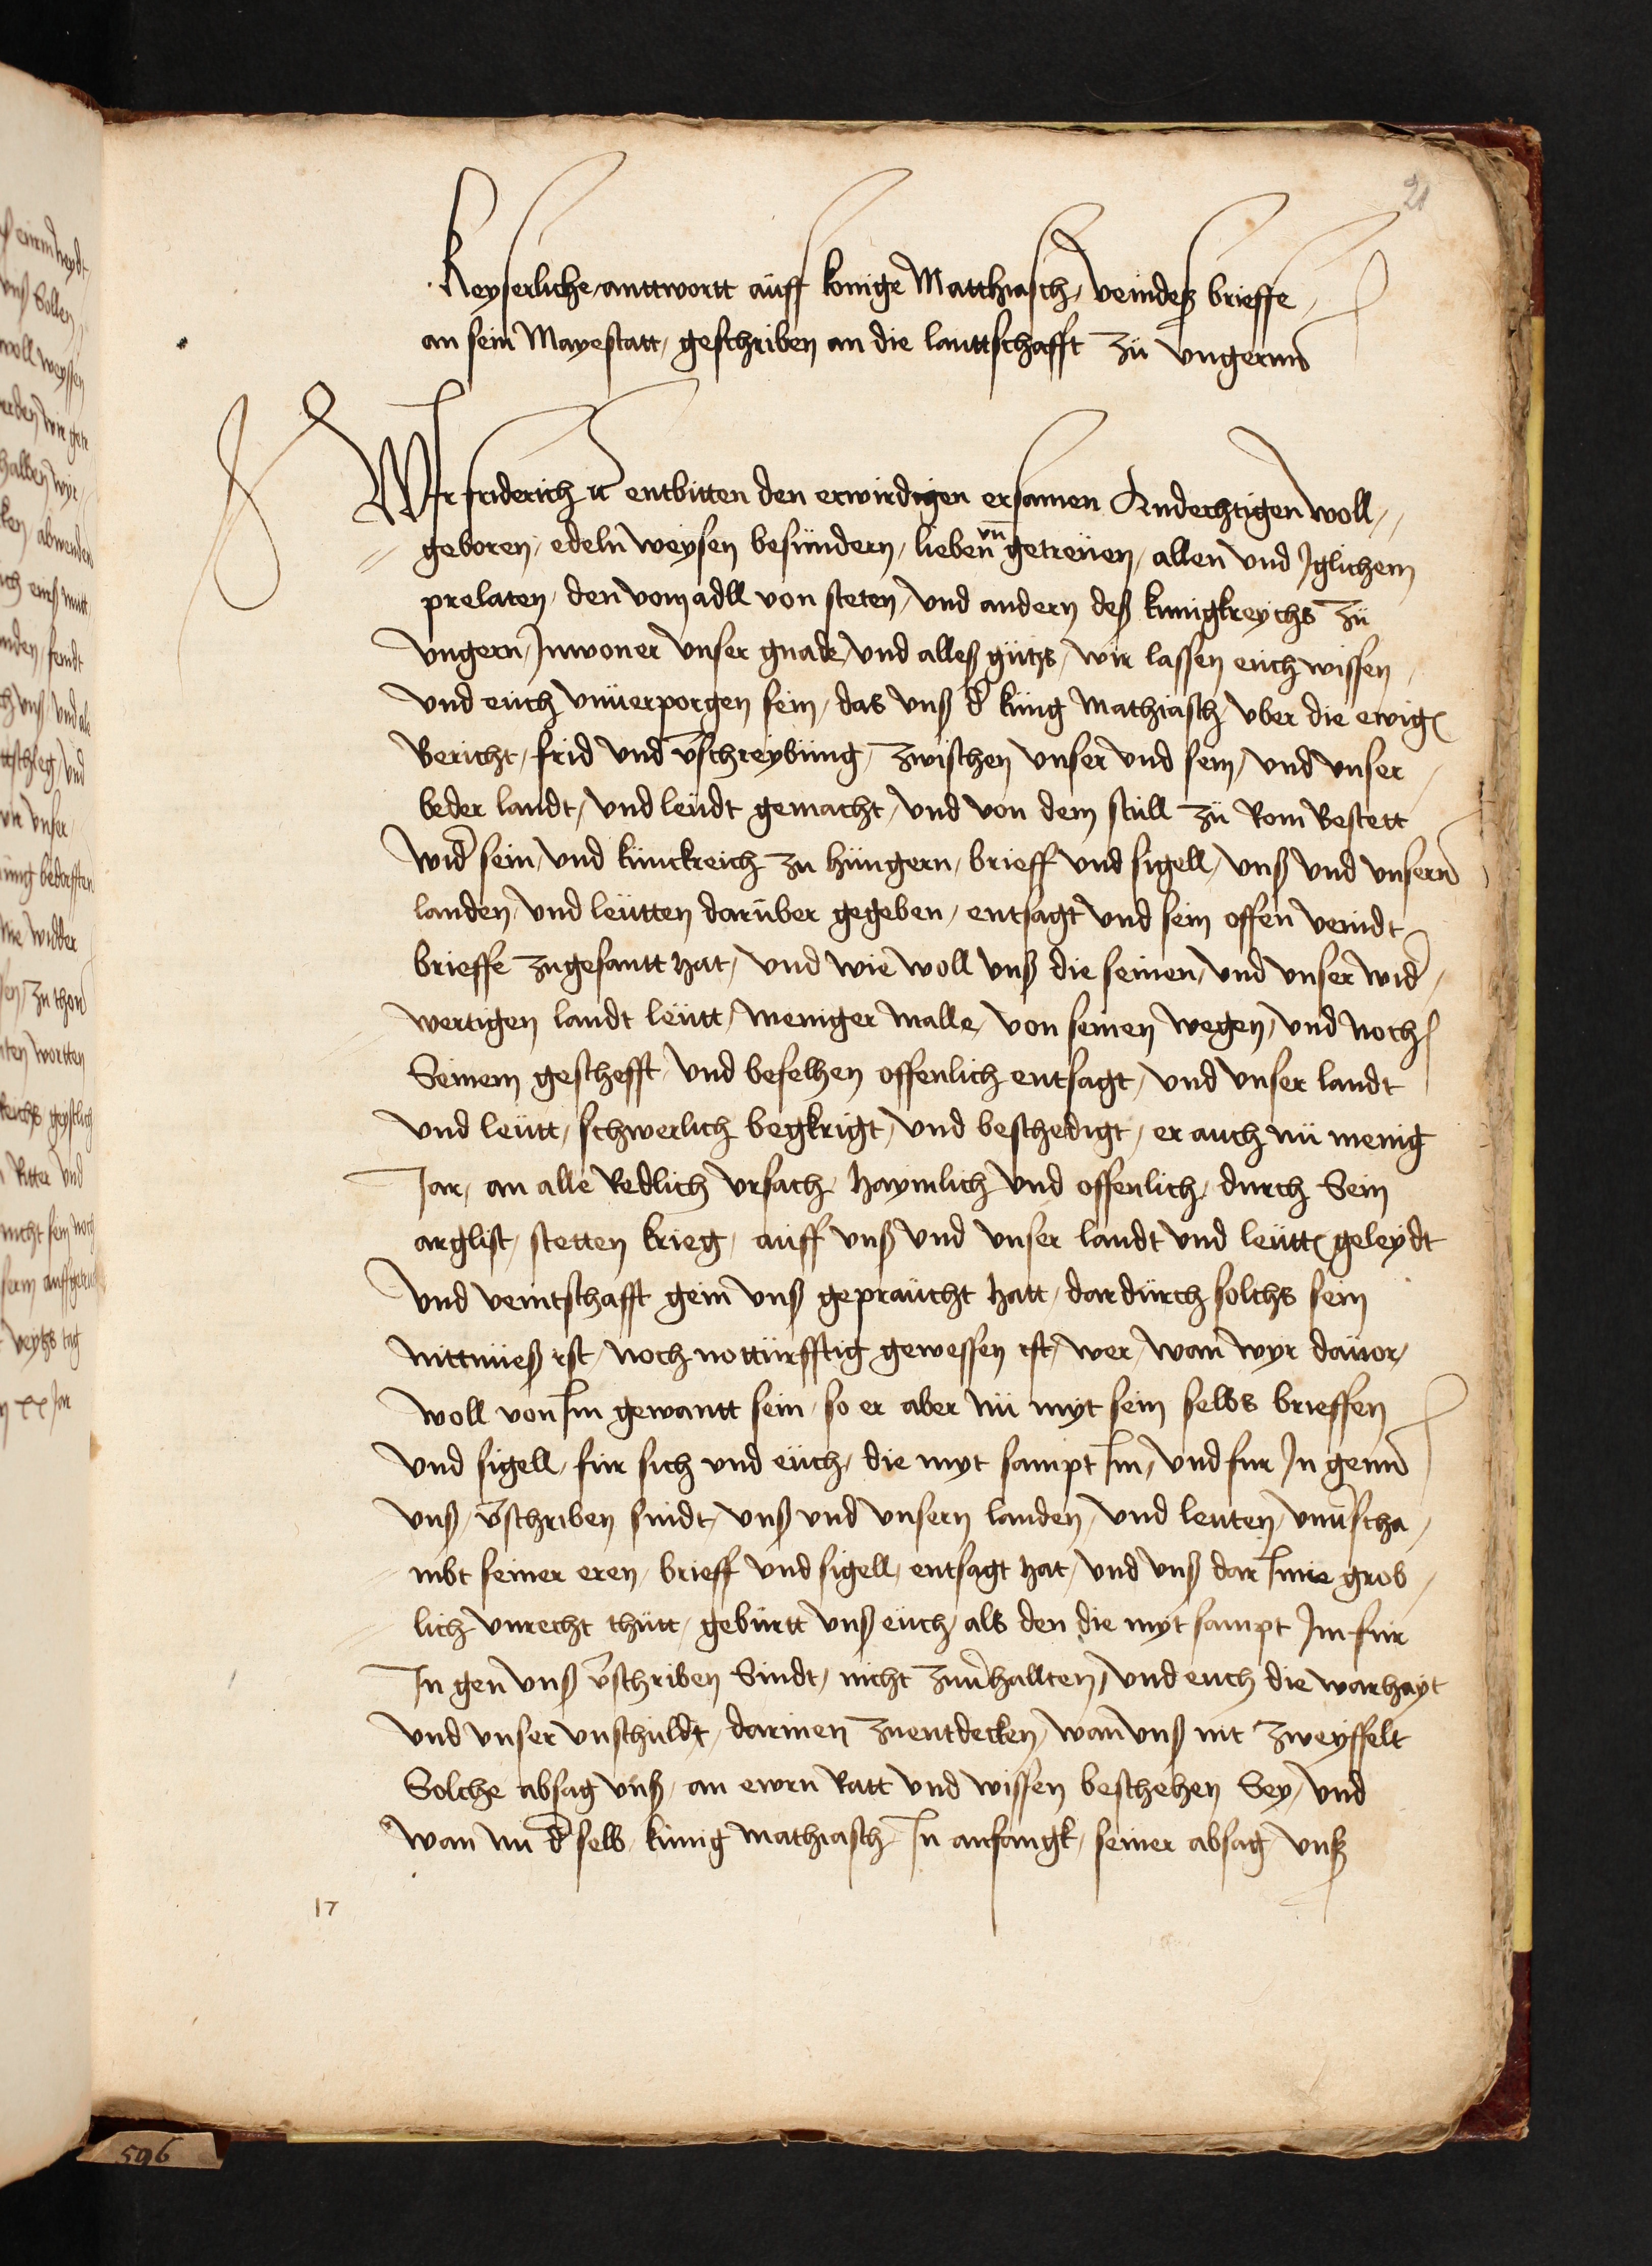 21
Keyserliche anttwortt auff konigs Matthiasch veindeß brieffe
an sein Mayestatt, geschriben an die lanttschafft zů Vngernn
Wir friderich ꝛc entbitten den erwirdigen ersamen Andechtigen woll,,
geboren, edeln weysen besündern, lieben vn̄ getreüen, allen vnd Iglichem
prelaten, den vom adll von steten, vnd andern deß künigkreychs zů
vngern, Inwoner vnser gnade, vnd alles gůts, wir lassen eüch wissen,
vnd eüch vnüerporgen sein, das vnß d̕ küng Mathiasch vber die ewigē
Bericht, frid vnd v̄schreybüng, zwischen vnser vnd sein, vnd vnser
beder landt, vnd leüdt gemacht, vnd von dem stull zů Rom Bestett
wid̕ sein, vnd künckreich zu hüngern, brieff vnd sigell, vnß vnd vnsernn
landen, vnd leütten darüber gegeben, entsagt vnd sein offen veindt
brieffe zugesantt hat, vnd wie woll vnß die seinen, vnd vnser wid̕,
wertigen landt leütt, meniger malle, von seinen wegen, vnd noch
Seinem geschefft, vnd befelhen offenlich entsagt, vnd vnser landt
vnd leütt, schwerlich begkrigt, vnd beschedigt, er auch nü menig
Jar, an alle Redlich vrsach, haymlich vnd offenlich, durch Sein
arglist, stetten krieg, auff vnß vnd vnser landt vnd leüttē geleydt
vnd veintschafft gein vnß gepraücht hatt, dardürch solchs sein
nittnüeß ist, noch nottürfftig gewessen ist, wer, wan̄ wyr dauor,
woll von Im gewantt sein, so er aber nü myt sein selbs brieffen
vnd sigell, für sich vnd eüch, die myt sampt Im, vnd fur In genn
vnß, v̄schriben sindt, vnß vnd vnsern landen, vnd leuten, vnu̕scha,
mbt seiner eren, brieff vnd sigell, entsagt hat, vnd vnß dar Inne grob,
lich vnrecht thütt, gebürtt vnß eüch, als den die myt sampt Im für
In gen vnß v̄schriben Sindt, nicht zuu̕hallten, vnd euch die warhayt
vnd vnser vnschuldt, darinen zuentdecken, wan̄ vnß nit zweyffelt
Solche absag vnß, an ewrn Ratt vnd wissen beschehen Sey, vnd
wan nu d̕ selb, künig mathiasch, In anfangk, seiner absag vnß
17
596